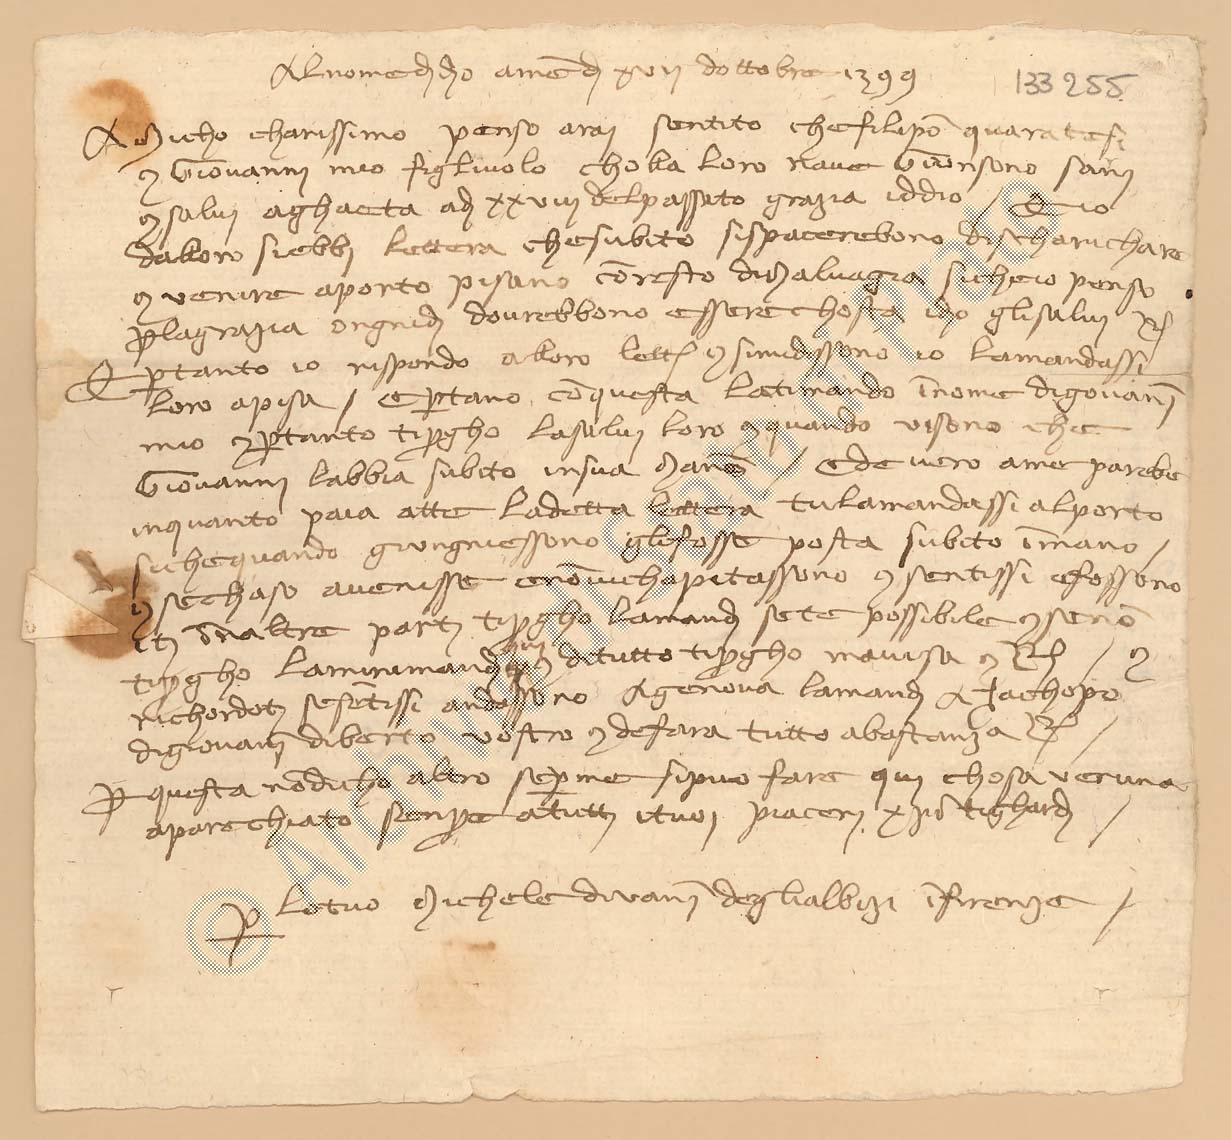 Al nome di dio amen di xvii d'ottobre 1399
133255
Amicho charissimo penso arai sentito che filipo quaratesi
e Giovanni mio figliuolo cholla loro nave giunsono sani
e salvi a ghaeta a di xxviii del passato grazia iddio / E io
dalloro si ebbi lettera che subito si spacerebono di scharichare
e venire a porto pisano con resto di malvagia siche io penso
per la grazia ongni di dovrebbono essere chosta idio gli salvi
E pertanto io rispondo alloro lettera e simi dissono io la mandassi
loro a pisa / e pertano con questa la ti mando in nome di govanni
mio e pertanto ti pregho la salvi loro e quando vi sono che
Giovanni l'abbia subito in sua mano / E de vero a me parebe
inquanto paia atte la detta lettera tu la mandassi al porto
siche quando giungniessono gli fosse posta subito in mano /
e se chaso avenisse e non vi chapitassono e sentissi e fossono
iti in altre parti ti pregho la mandi se t'è possibile e se no
ti pregho la mi rimandi qui di tutto ti pregho m'avisa e / e
richordoti se sentissi andassono a genova la mandi a Jachopo
di giovanni di berto vostro e de fara tutto a bastanza /
Per questa non dicho altro se per me si puo fare qui chosa veruna
aparechiato senpre a tutti i tuoi piaceri xpo ti ghardi /
Per lo tuo Michele di vanni degli albizi in firenze /
© Archivio di Stato di Prato